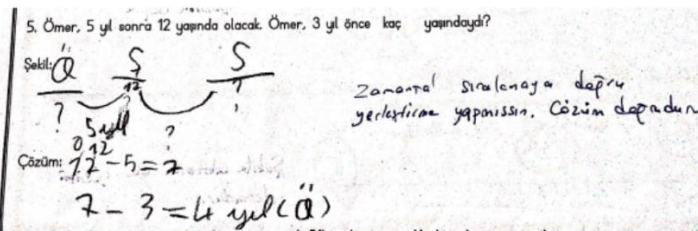 5. Ömer, 5 yıl sonra 12 yaşında olacak. Ömer, 3 yıl önce kaç yaşındaydı?
Şekil: Ö Ş S
? 12 ?
5 yıl ?
Zamansal sıralamaya doğru
yerleştirme yapmışsın. Çözüm doğrudur
0 12
Çözüm: 12-5=7
7-3=4 yıl (Ö)